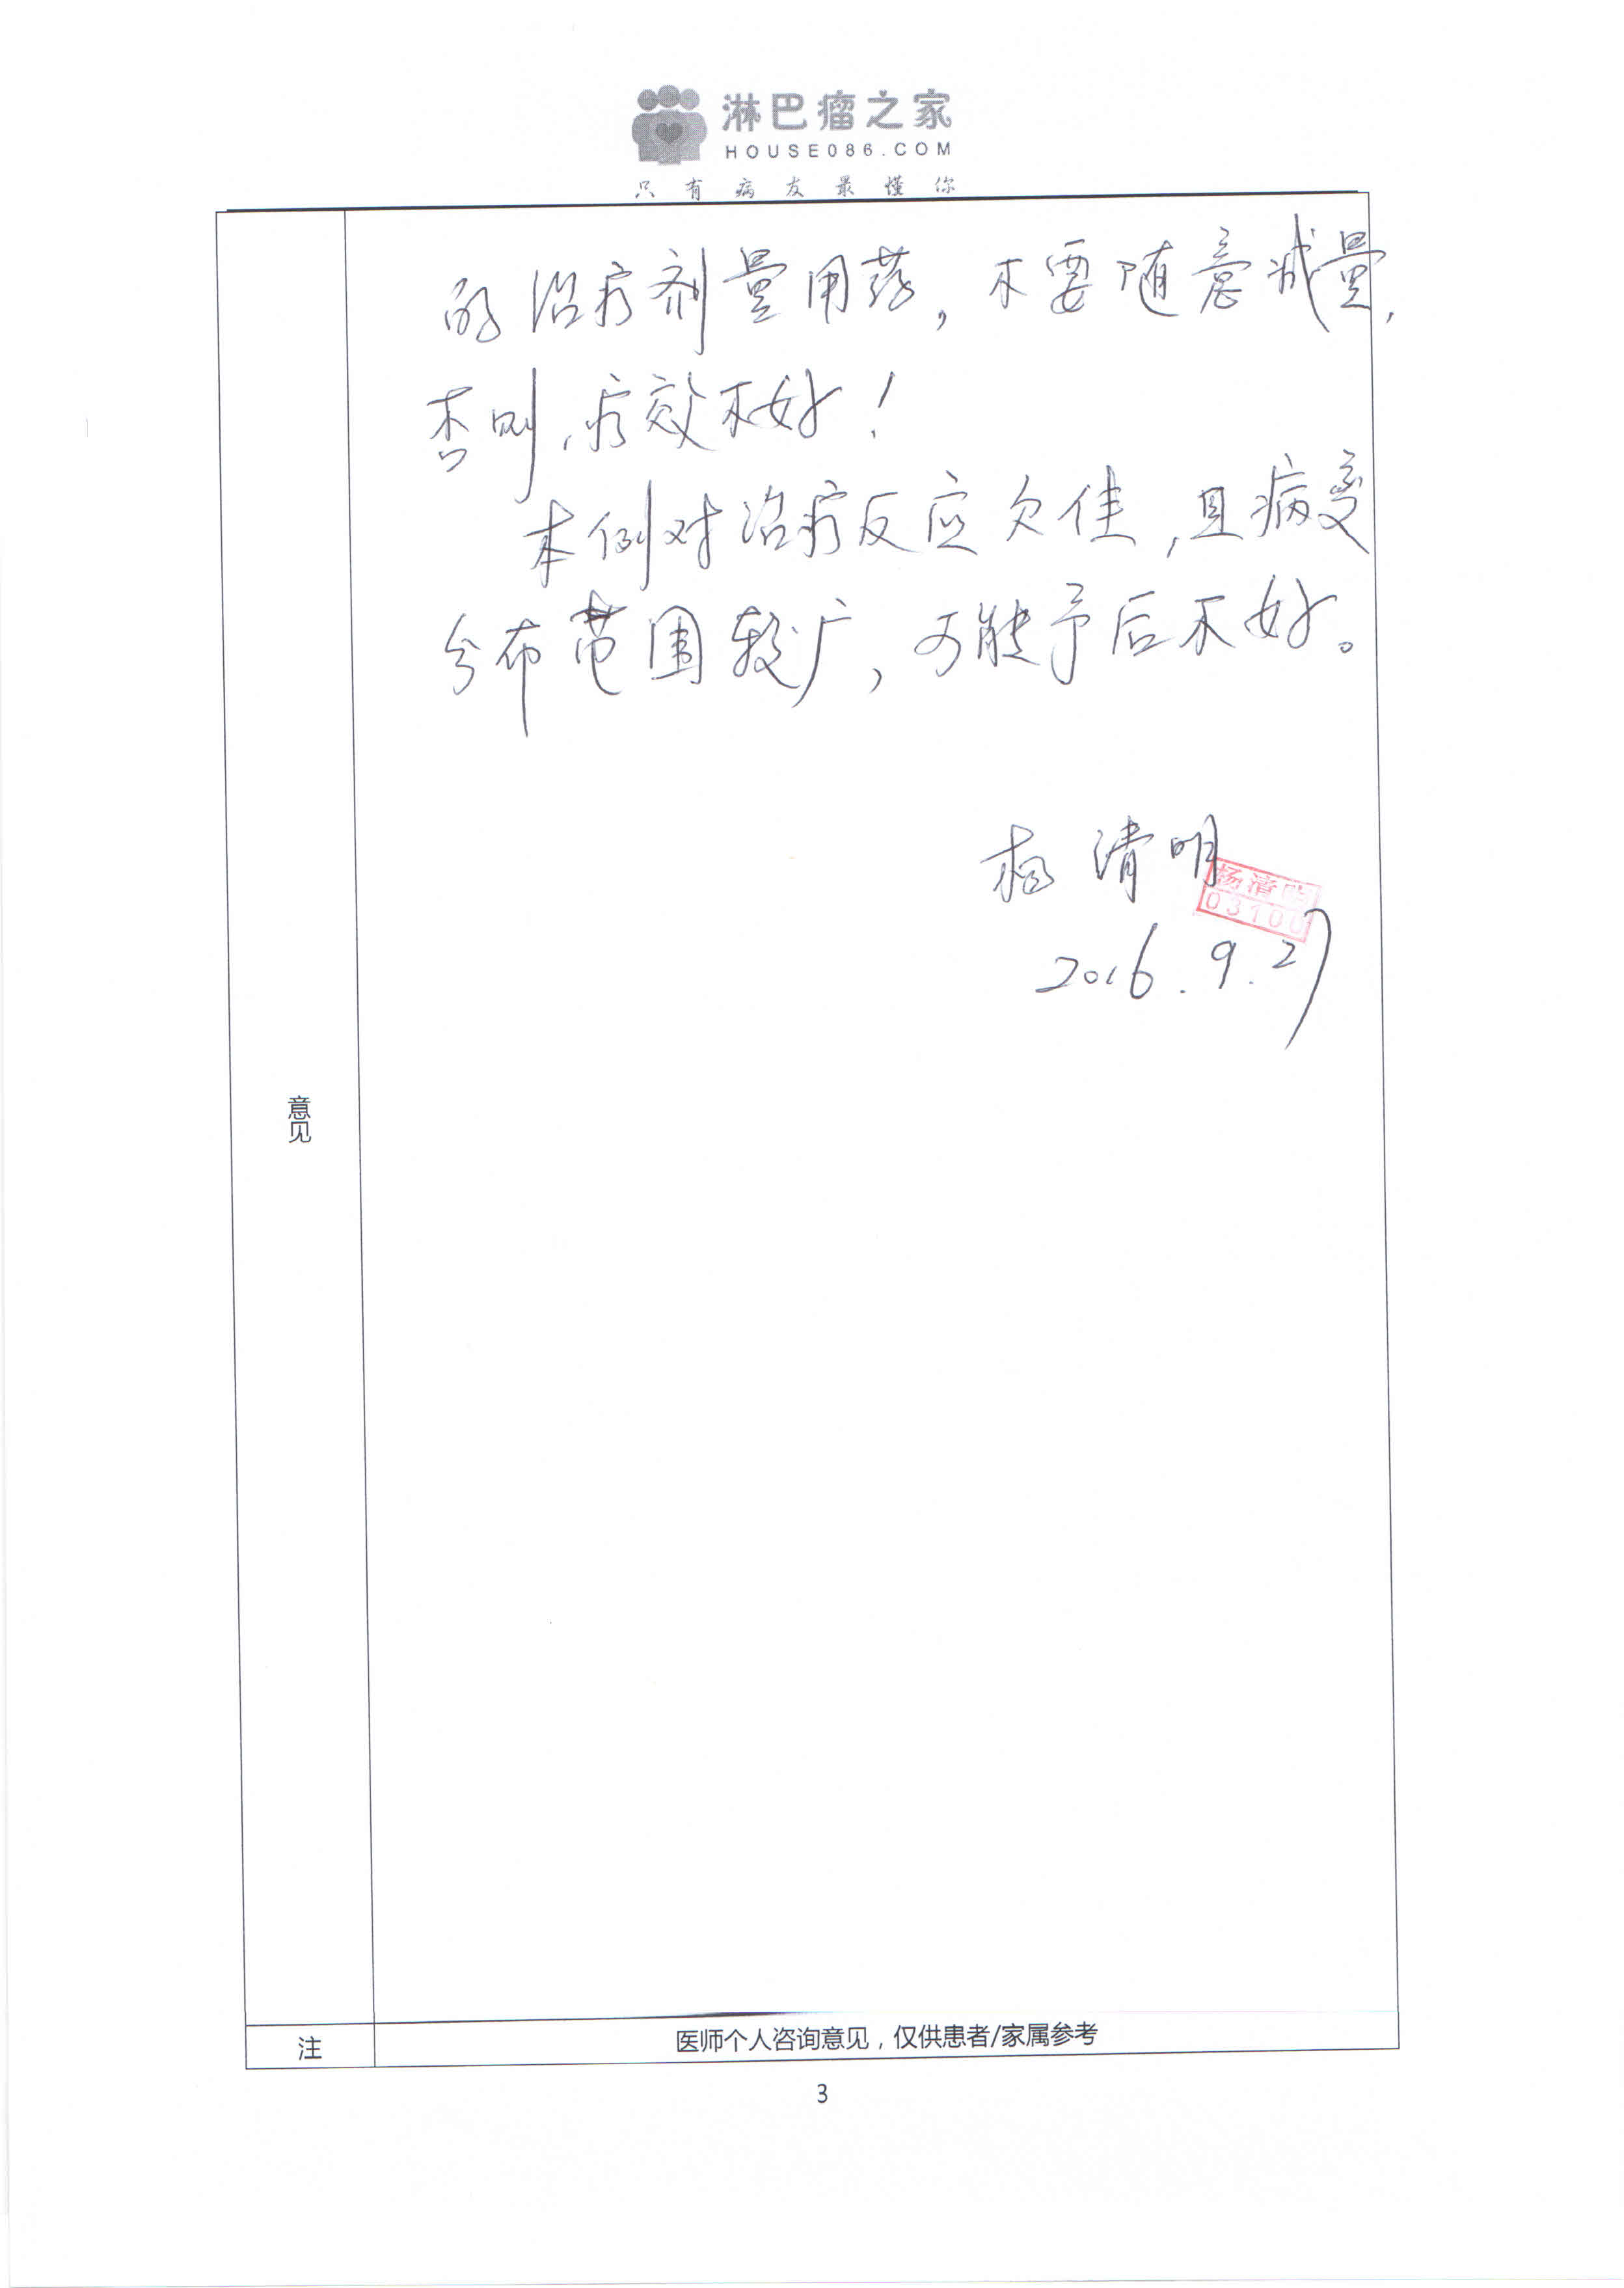 淋巴瘤之家
HOUSE086.COM
只有病友最懂你
的治疗剂量用药，不要随意减量，
否则，疗效不好！
本例对治疗反应欠佳，且病变
分布范围较广，可能予后不好。
杨清明
杨清明
03100
2016.9.27
意见
注
医师个人咨询意见，仅供患者/家属参考
3